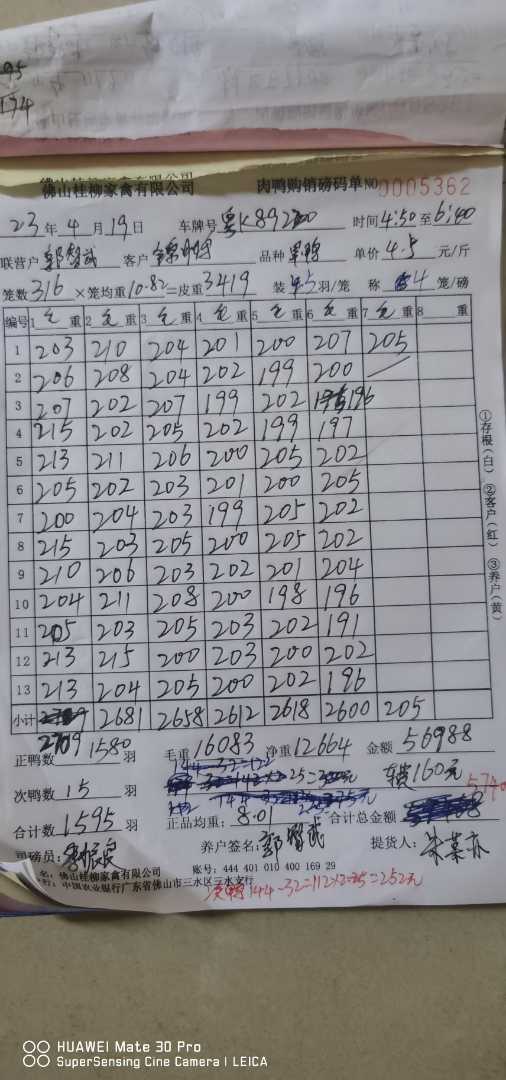 95
174
佛山桂柳家禽有限公司 肉鸭购销磅码单 NO 0005362
23年4月19日 车牌号 粤K89200 时间4:50至6:40
联营户 客户 品种 单价4.5元/斤
笼数316×笼均重10.82=皮重3419 装5羽/笼 称4笼/磅
编号 1毛重 2毛重 3毛重 4毛重 5毛重 6毛重 7毛重 8 重
1 203 210 204 201 200 207 205
2 206 208 204 202 199 200
3 207 202 207 199 202 196
4 215 202 205 202 199 197
5 213 211 206 200 205 202
6 205 202 203 201 200 205
7 200 204 203 199 205 202
8 215 203 205 200 205 202
9 210 206 203 202 201 204
10 204 211 208 200 198 196
11 205 203 205 203 202 191
12 213 215 200 203 200 202
13 213 204 205 200 202 196
小计 2709 2681 2658 2612 2618 2600 205
正鸭数1580羽 毛重16083 净重12664 金额56988
车费160元
次鸭数15羽
合计数1595羽 正品均重:8.01 合计总金额
司磅员: 养户签名: 提货人:
名:佛山桂柳家禽有限公司 账号:444 401 010 400 169 29
行:中国农业银行广东省佛山市三水区三水支行
144-32=112×2.25=252元
①存根(白) ②客户(红) ③养户(黄)
HUAWEI Mate 30 Pro
SuperSensing Cine Camera | LEICA